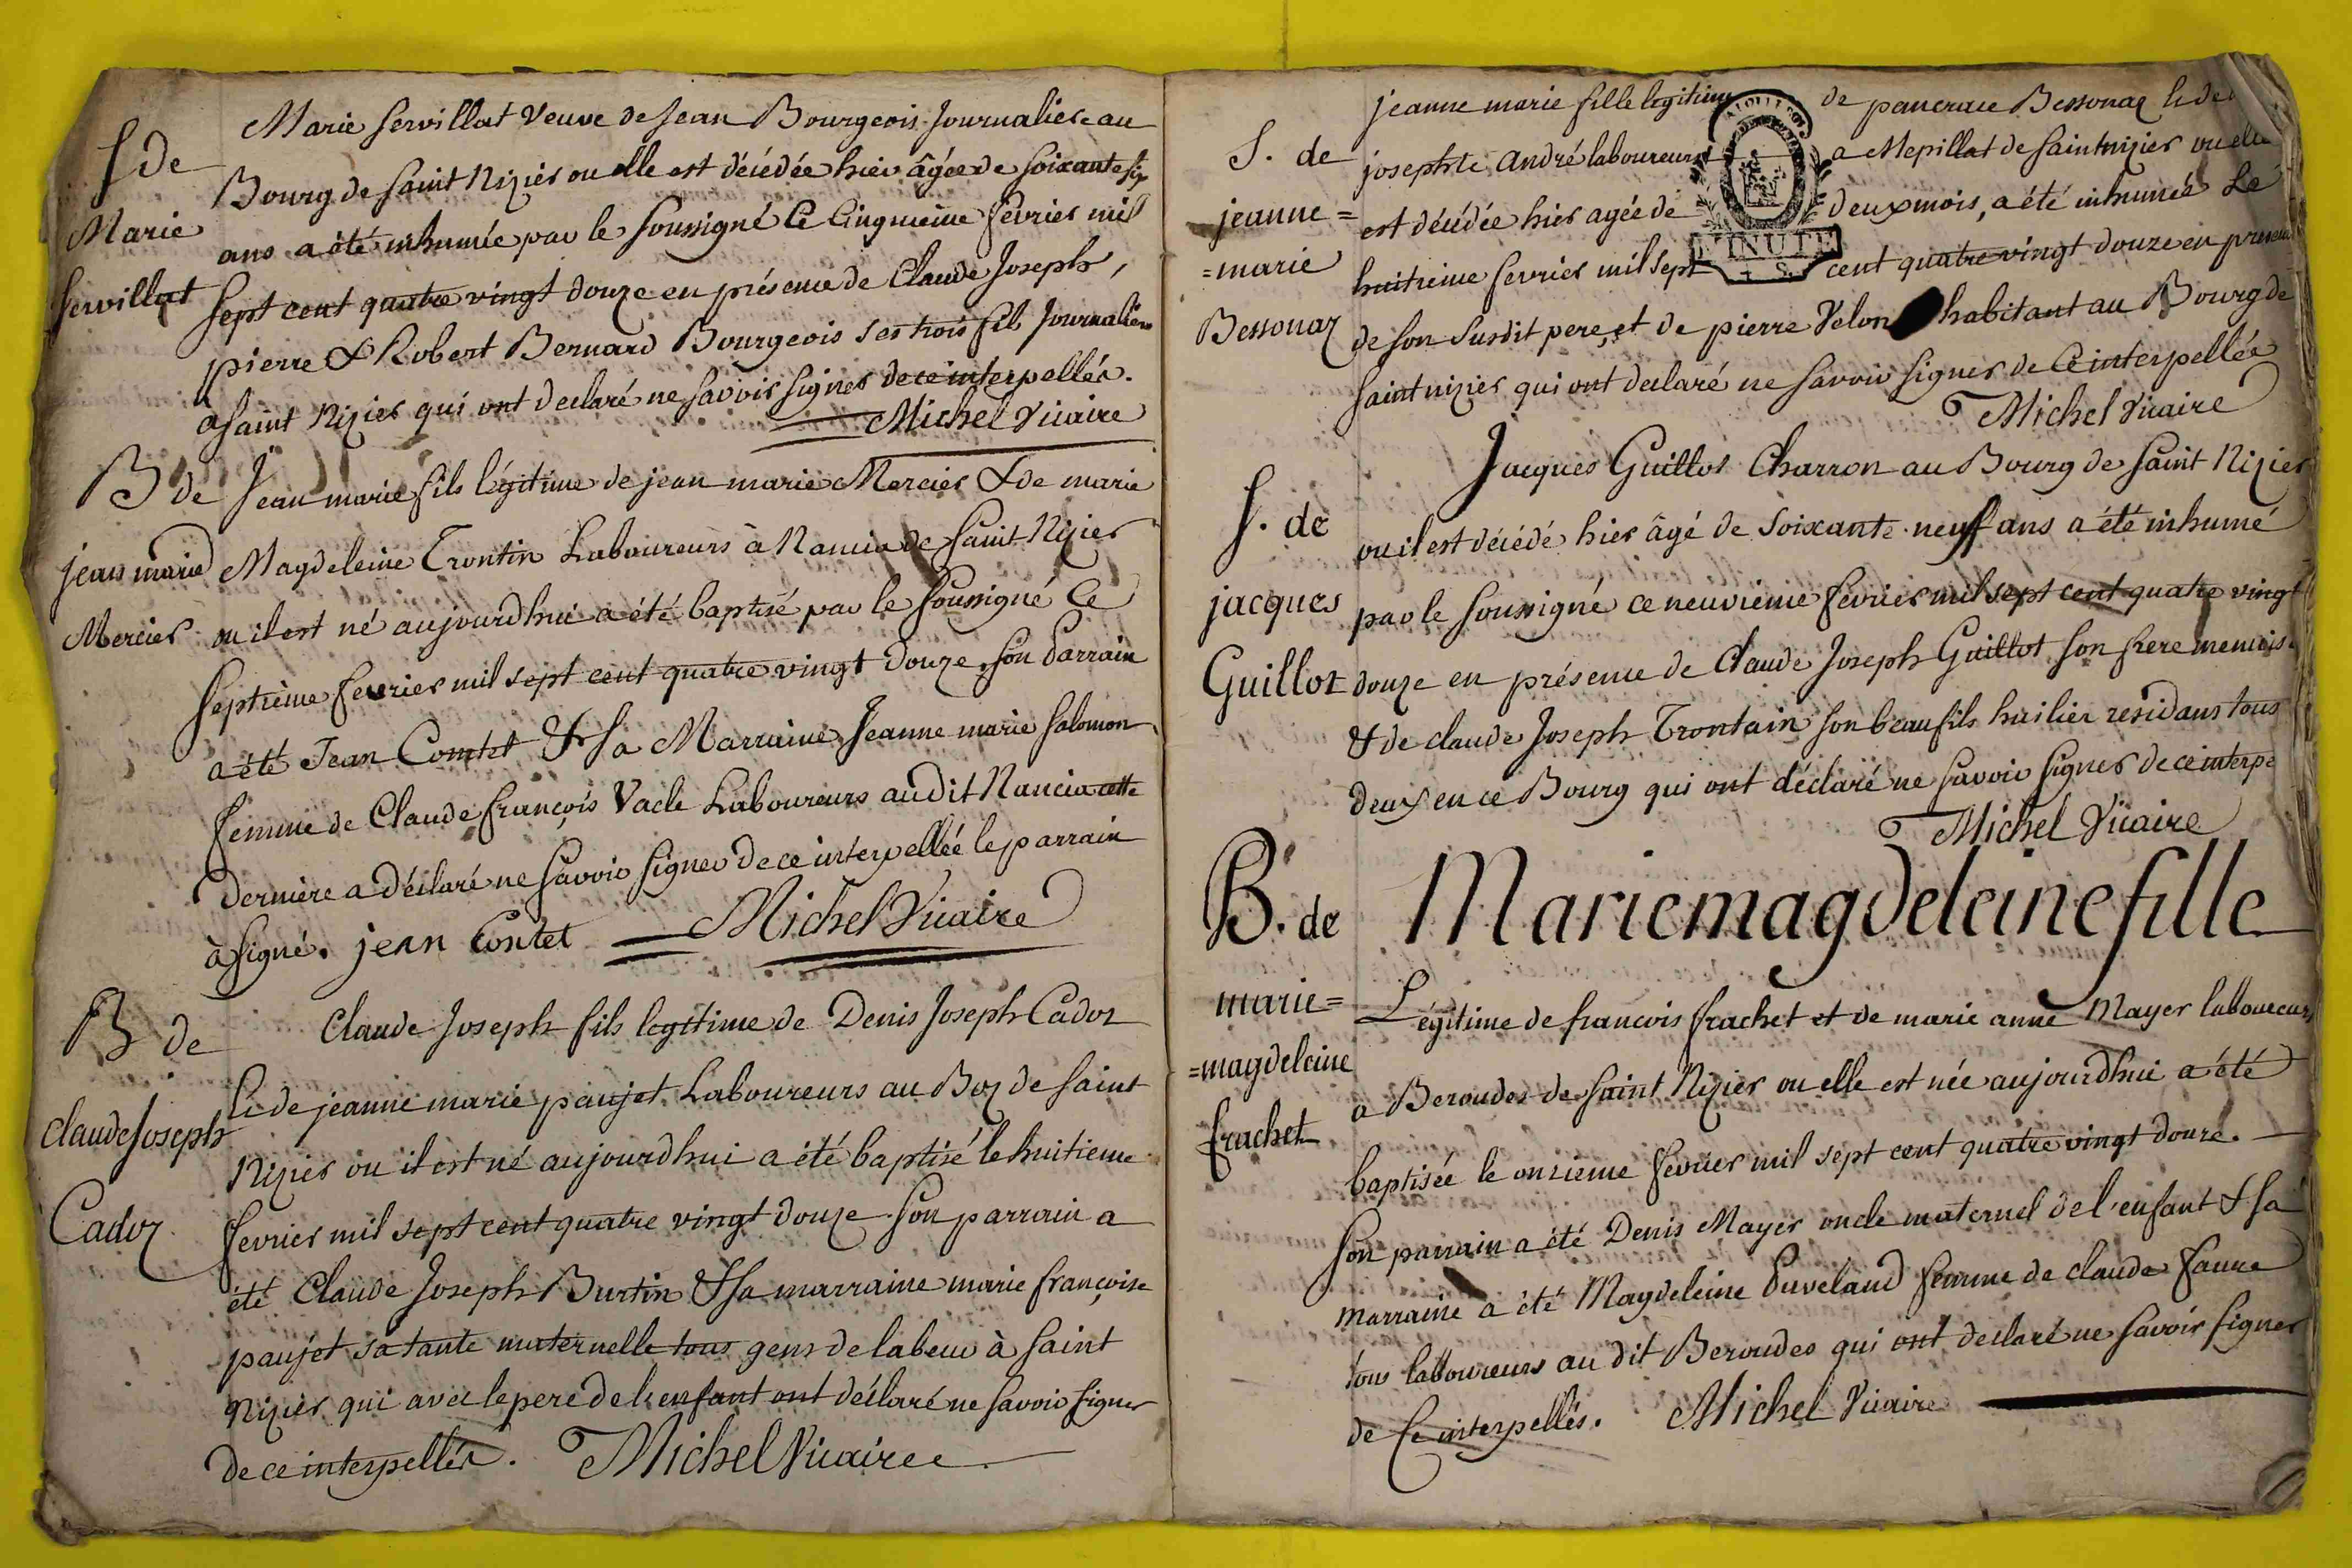 S de
Marie
Servillat
Marie Servillat Veuve de Jean Bourgeois Journalier au
Bourg de Saint Nizier ou elle est décédée hier âgée de soixante six
ans a été inhumée par le Soussigné Ce Cinqmeine fevrier mil
Sept cent quatre vingt douze en présence de Claude Joseph,
pierre & Robert Bernard Bourgeois ses trois fils Journaliers
à Saint Nizier qui ont declaré ne savoir signer de ce interpellés.
Michel Vicaire
B de
jean marie
Mercier
Jean marie fils légitime de jean marie Mercier & de marie
Magdeleine Trontin Laboureurs à Nancia de Saint Nizier
ou il est né aujourdhui a été baptisé par le soussigné Ce
Septième fevrier mil sept cent quatre vingt douze, son Parrain
a été Jean Comtet & sa Marraine Jeanne marie Salomon
femme de Claude françois Vacle Laboureurs audit Nancia cette
derniere a déclaré ne Savoir signer de ce interpellée le parrain
à signé. jean Contet Michel Vicaire
B de
Claude Joseph
Cadoz
Claude Joseph fils legitime de Denis Joseph Cadoz
& de jeanne marie paujet Laboureurs au Boz de Saint
Nizier ou il est né aujourdhui a été baptisé le huitieme
fevrier mil sept cent quatre vingt douze. Son parrain a
été Claude Joseph Burtin & sa marraine marie françoise
paujet sa tante maternelle tous gens de labeur à Saint
Nizier qui avec le pere de l'enfant ont déclaré ne Savoir signer
de ce interpellés. Michel Vicaire
S. de
jeanne=
=marie
Bessonaz
jeanne marie fille legitime de pancrace Bessonaz & de
josephte André laboureurs a Mepillat de saint nizier ou elle
est décédée hier agée de deux mois, a été inhumée Le
huitieme fevrier mil sept cent quatre vingt douze en presence
MINUTE
de son Susdit pere, et de pierre Velon habitant au Bourg de
saint nizier qui ont declaré ne savoir signer de Ce interpellés
Michel Vicaire
S. de
jacques
Guilloz
Jacques Guillot Charron au Bourg de Saint Nizier
ou il est décédé hier âgé de Soixante-neuf ans a été inhumé
par le Soussigné ce neuvieme fevrier mil sept cent quatre vingt
douze en présence de Claude Joseph Guillot son frere
& de claude Joseph Trontain son beau fils huilier residans tous
deux en ce Bourg qui ont déclaré ne savoir signer de ce interpe
Michel Vicaire
B. de
marie=
=magdeleine
frachet
Marie magdeleine fille
Légitime de francois frachet et de marie anne Mayer laboureurs
a Beroudes de Saint Nizier ou elle est née aujourdhui a été
baptisée le onzieme fevrier mil sept cent quatre vingt douze.
Son parrain a été Denis Mayer oncle maternel de l'enfant & sa
marraine a été Magdeleine Puveland femme de claude Fanne
tous laboureurs au dit Beroudes qui ont declaré ne Savoir signer
de Ce interpellés. Michel Vicaire